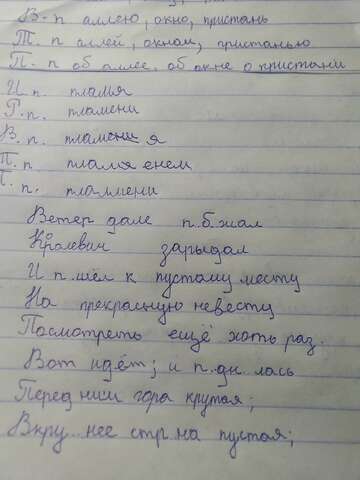 В. п аллею, окно, пристань
Т. п аллей, окном, пристанью
П. п об аллее, об окне о пристани
И п. пламя
Р. п. пламени
В. п. пламя
П. п пламя енем
П. п. пламмени
Ветер дале п.бжал
Королевич зарыдал
И п.шёл к пустому месту
На прекрасную невесту
Посмотреть ещё хоть раз.
Вот идёт; и п.дн.лась
Перед ним гора крутая;
Вкру..нее стр.на пустая;